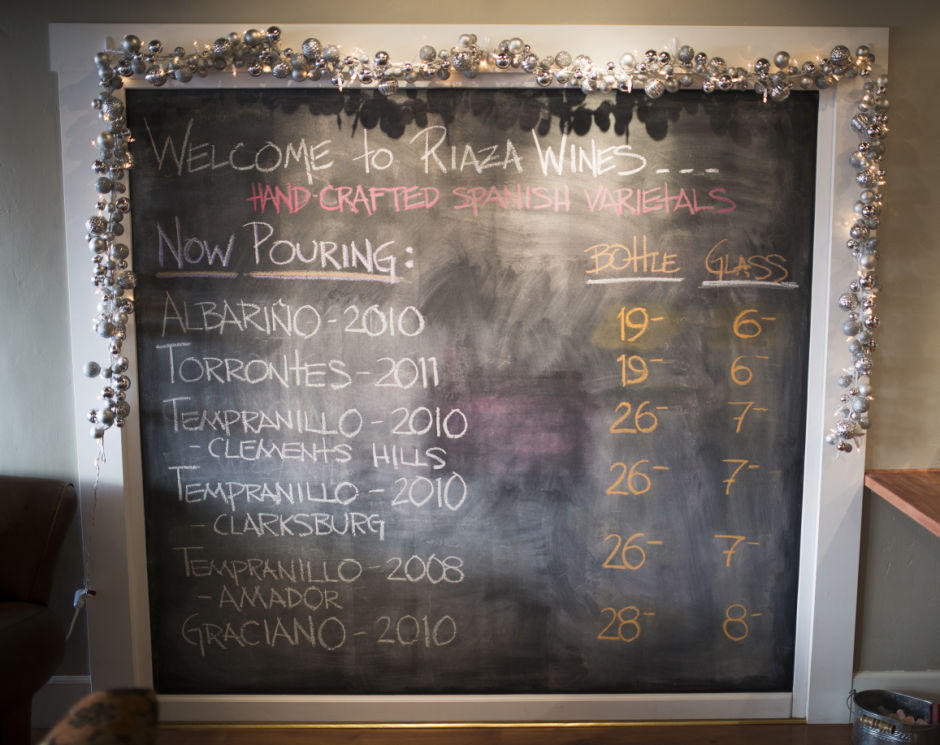 WELCOME to RIAZA WINES...
HAND-CRAFTED SPANISH VARIETALS
NOW POURING: BOTTLE GLASS
ALBARIÑO - 2010 19- 6-
TORRONTES - 2011 19- 6-
TEMPRANILLO - 2010 26- 7-
- CLEMENTS HILLS
TEMPRANILLO - 2010 26- 7-
- CLARKSBURG
TEMPRANILLO - 2008 26- 7-
- AMADOR
GRACIANO - 2010 28- 8-